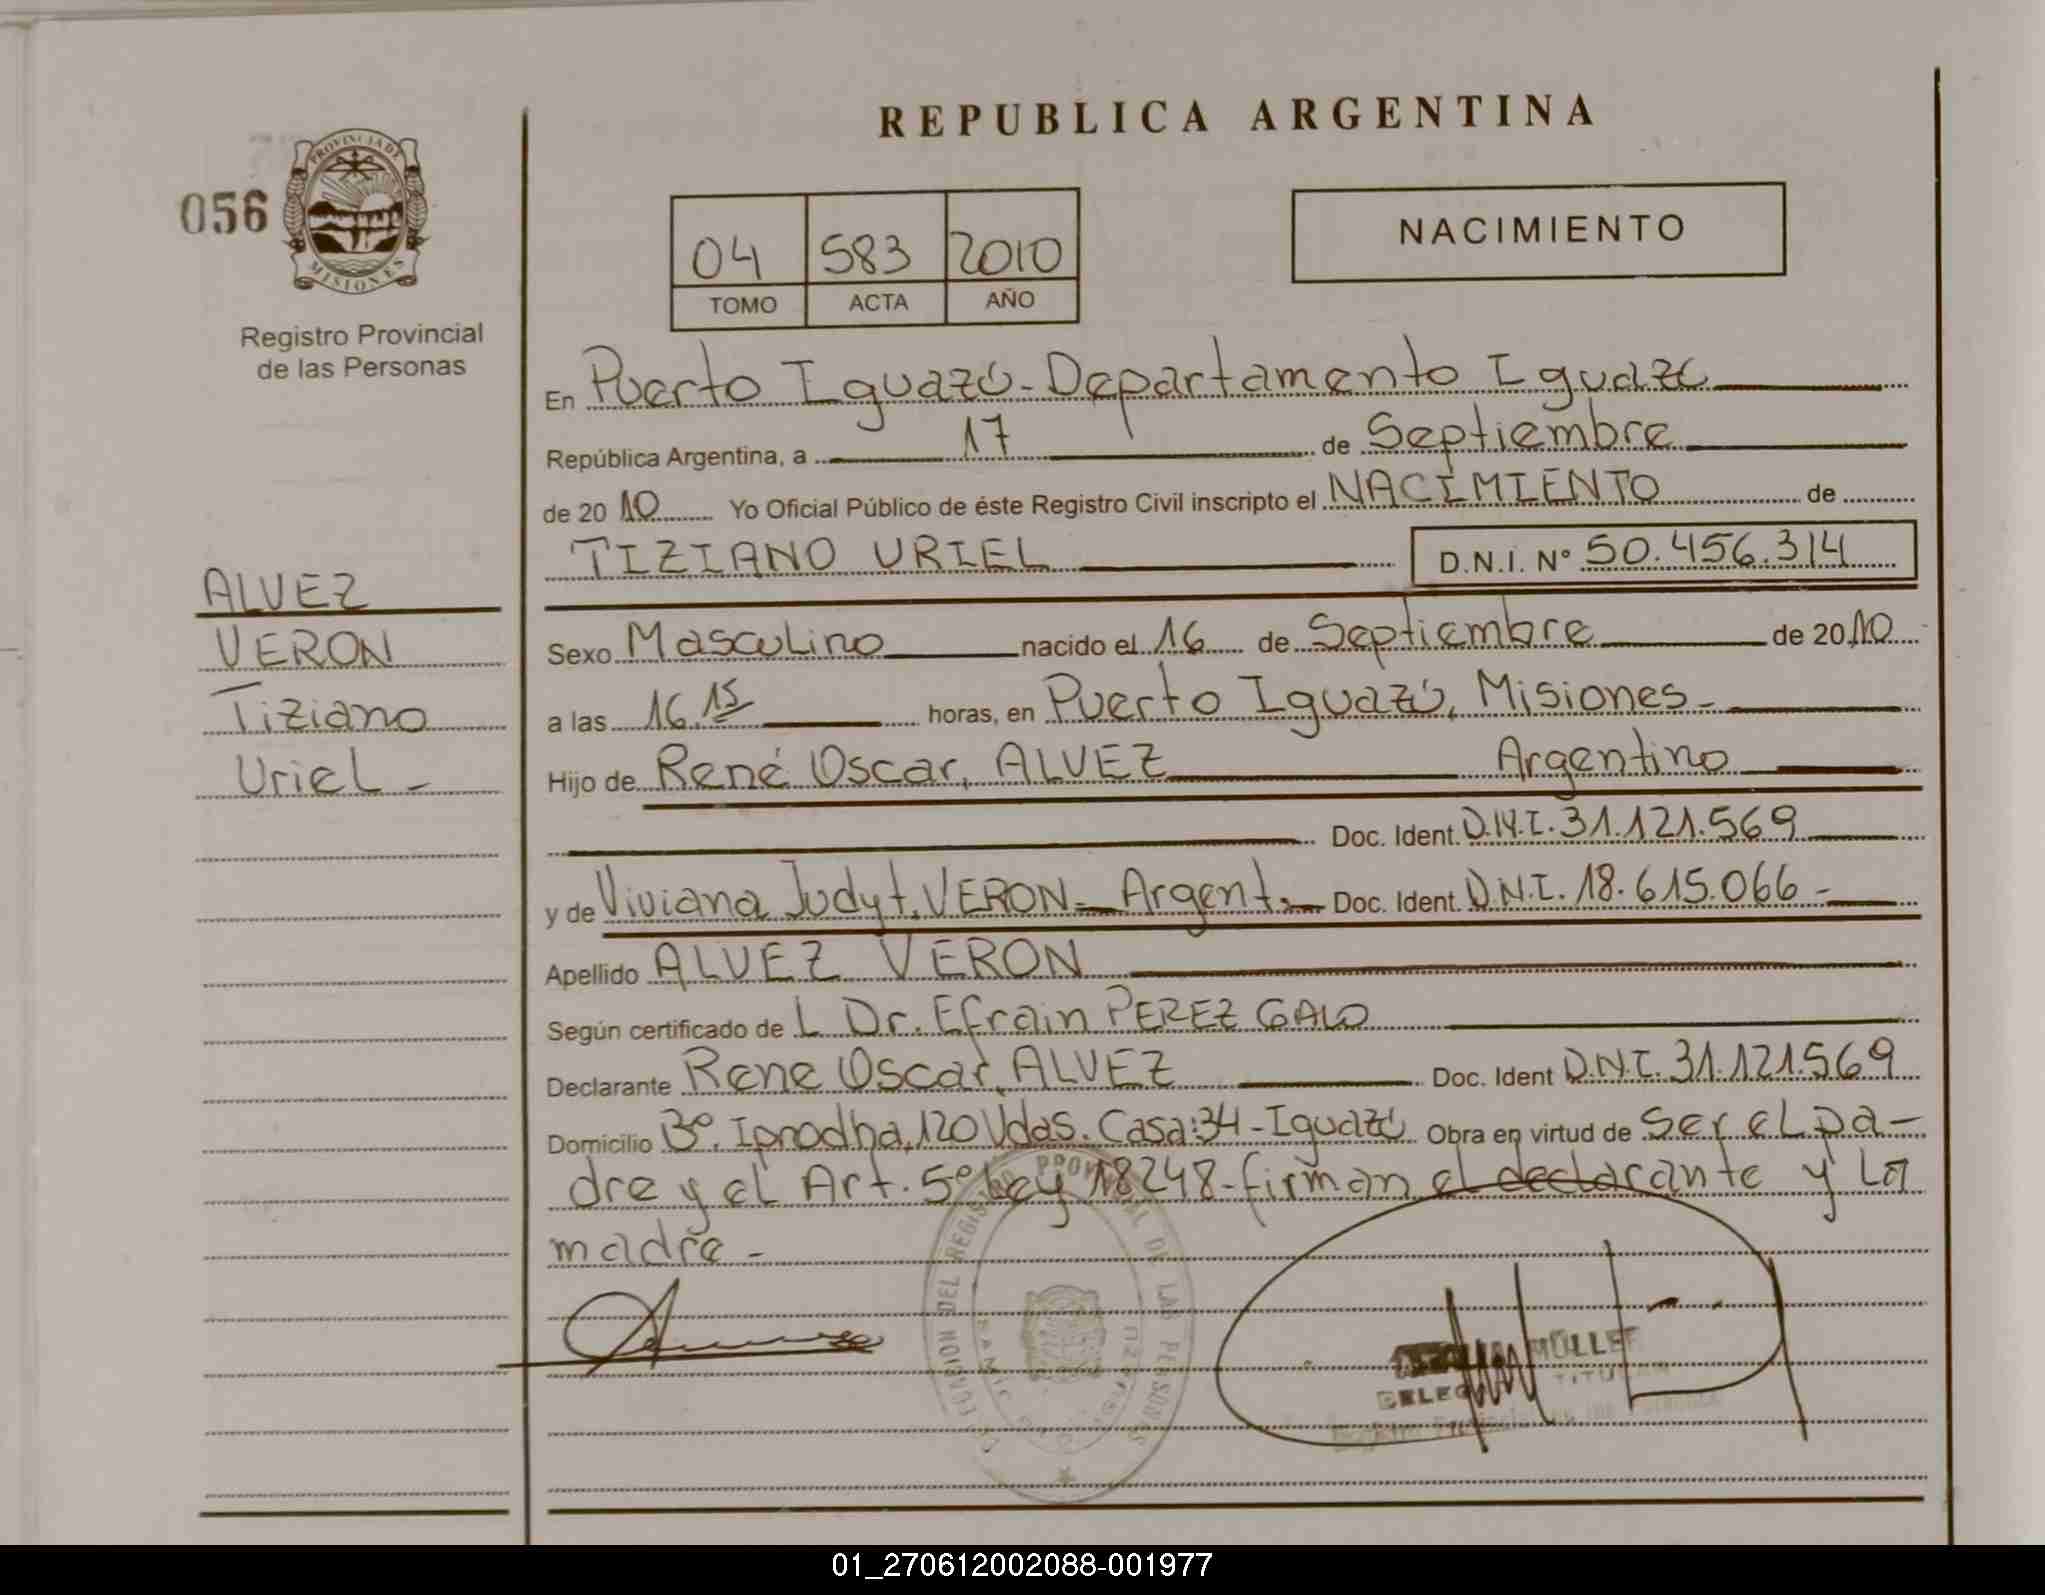 REPUBLICA ARGENTINA
056
PROVINCIA DE MISIONES
Registro Provincial
de las Personas
04 583 2010
TOMO ACTA AÑO
NACIMIENTO
ALVEZ
VERON
Tiziano
Uriel -
En Puerto Iguazú - Departamento Iguazú
República Argentina, a 17 de Septiembre
de 2010 Yo Oficial Público de éste Registro Civil inscripto el NACIMIENTO de
TIZIANO URIEL D.N.I. Nº 50.456.314
Sexo Masculino nacido el 16 de Septiembre de 2010
a las 16.15 horas, en Puerto Iguazú, Misiones -
Hijo de René Oscar, ALVEZ Argentino
Doc. Ident. D.N.I. 31.121.569
y de Viviana Judyt, VERON - Argent. Doc. Ident. D.N.I. 18.615.066 -
Apellido ALVEZ VERON
Según certificado de L Dr. Efrain PEREZ GALO
Declarante Rene Oscar, ALVEZ Doc. Ident D.N.I. 31.121.569
Domicilio Bº. 120 Vdas. Casa: 34 - Iguazú Obra en virtud de ser el pa-
dre y el Art. 5º Ley 18248 - firman el declarante y la
madre -
DIRECCION DEL REGISTRO PROVINCIAL DE LAS PERSONAS
MÜLLER
TITULAR
01_270612002088-001977